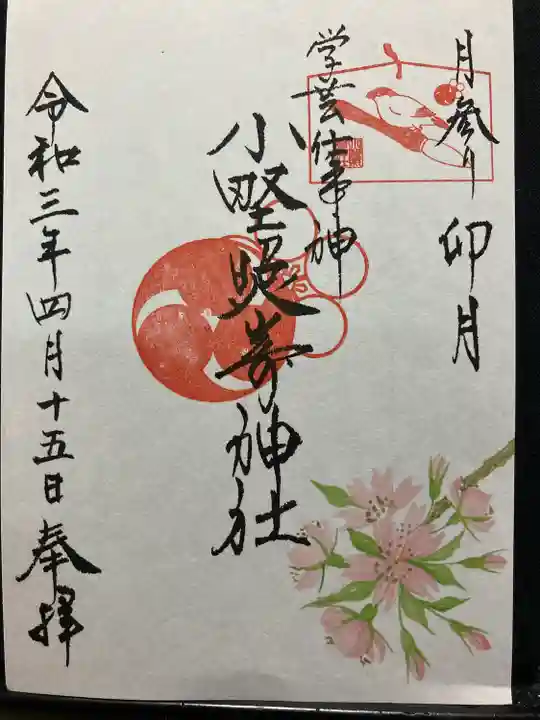 月参り 卯月
学芸仕事神
小野照崎神社
令和三年四月十五日 奉拝